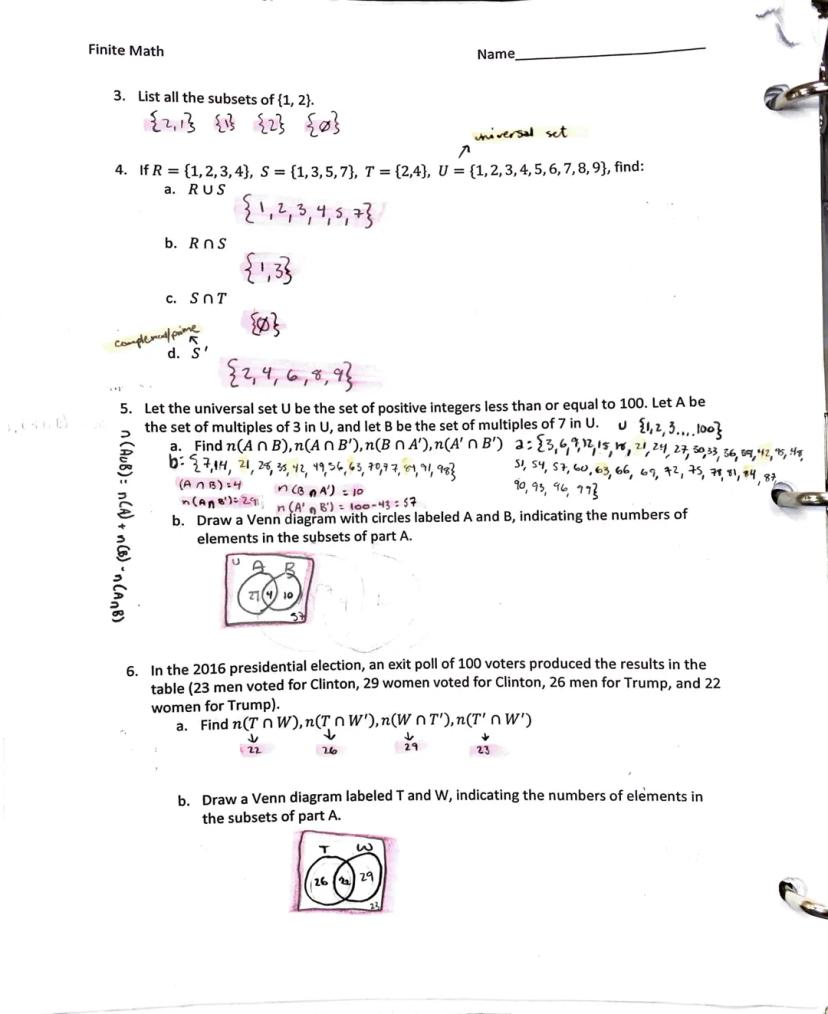 Finite Math Name
3. List all the subsets of {1, 2}.
{2,1} {1} {2} {∅}
universal set
4. If R = {1,2,3,4}, S = {1,3,5,7}, T = {2,4}, U = {1,2,3,4,5,6,7,8,9}, find:
a. R ∪ S
{1,2,3,4,5,7}
b. R ∩ S
{1,3}
c. S ∩ T
{∅}
complement/prime
d. S'
{2,4,6,8,9}
5. Let the universal set U be the set of positive integers less than or equal to 100. Let A be
the set of multiples of 3 in U, and let B be the set of multiples of 7 in U. U {1,2,3,...,100}
a. Find n(A ∩ B), n(A ∩ B'), n(B ∩ A'), n(A' ∩ B') a:{3,6,9,12,15,18,21,24,27,30,33,36,39,42,45,48,
b:{7,14,21,28,35,42,49,56,63,70,77,84,91,98} 51,54,57,60,63,66,69,72,75,78,81,84,87
(A ∩ B)=4 n(B ∩ A') = 10 90,93,96,99}
n(A ∩ B')=29 n(A' ∩ B') = 100-43 = 57
n(A∪B) = n(A) + n(B) - n(A∩B)
b. Draw a Venn diagram with circles labeled A and B, indicating the numbers of
elements in the subsets of part A.
U A B
4 10
57
6. In the 2016 presidential election, an exit poll of 100 voters produced the results in the
table (23 men voted for Clinton, 29 women voted for Clinton, 26 men for Trump, and 22
women for Trump).
a. Find n(T ∩ W), n(T ∩ W'), n(W ∩ T'), n(T' ∩ W')
22 26 29 23
b. Draw a Venn diagram labeled T and W, indicating the numbers of elements in
the subsets of part A.
T W
26 22 29
23